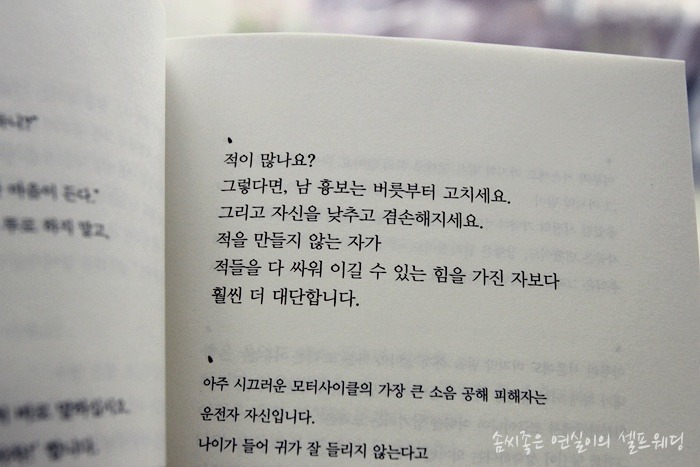 마음이 든다."
적이 많나요?
그렇다면, 남 흉보는 버릇부터 고치세요.
그리고 자신을 낮추고 겸손해지세요.
적을 만들지 않는 자가
적들을 다 싸워 이길 수 있는 힘을 가진 자보다
훨씬 더 대단합니다.
아주 시끄러운 모터사이클의 가장 큰 소음 공해 피해자는
운전자 자신입니다.
나이가 들어 귀가 잘 들리지 않는다고
솜씨좋은 연실이의 셀프웨딩